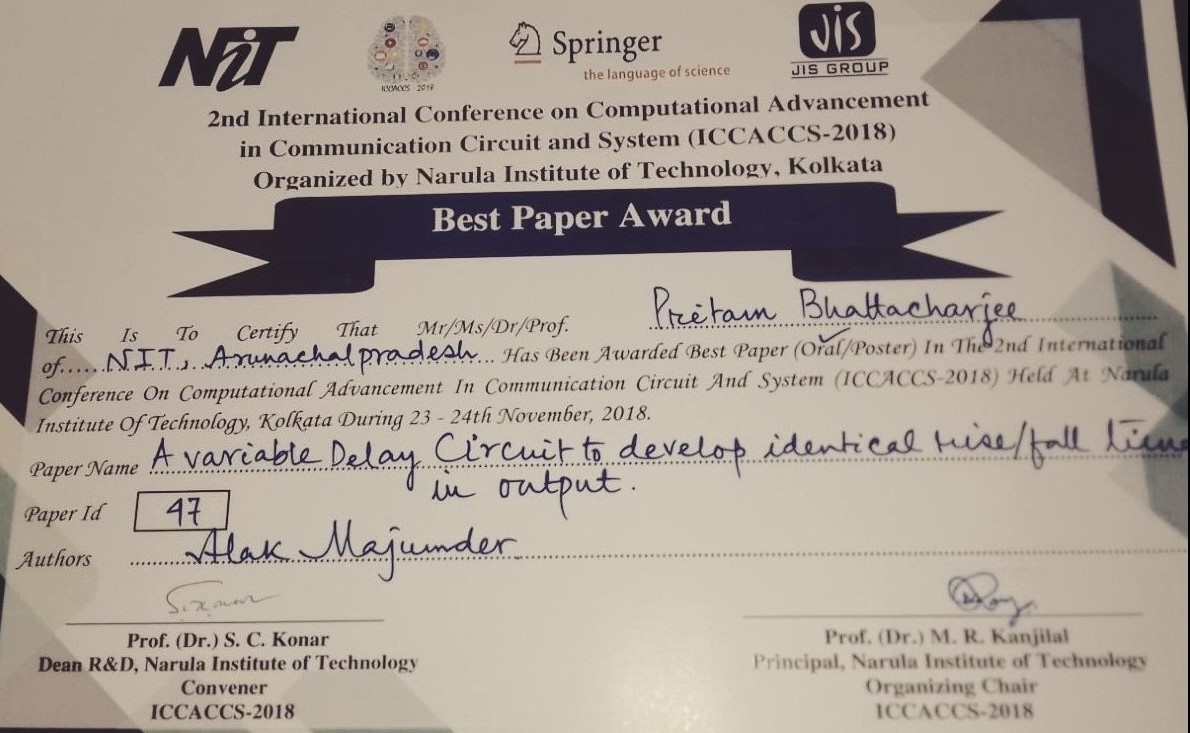 NiT
ICCACCS 2018
Springer
the language of science
JIS
JIS GROUP
2nd International Conference on Computational Advancement
in Communication Circuit and System (ICCACCS-2018)
Organized by Narula Institute of Technology, Kolkata
Best Paper Award
This Is To Certify That Mr/Ms/Dr/Prof. Pritam Bhattacharjee
of......NIT, Arunachal pradesh... Has Been Awarded Best Paper (Oral/Poster) In The 2nd International
Conference On Computational Advancement In Communication Circuit And System (ICCACCS-2018) Held At Narula
Institute Of Technology, Kolkata During 23 - 24th November, 2018.
Paper Name A variable Delay Circuit to develop identical rise/fall time
in output.
Paper Id 47
Authors Alak Majumder
Prof. (Dr.) S. C. Konar
Dean R&D, Narula Institute of Technology
Convener
ICCACCS-2018
Prof. (Dr.) M. R. Kanjilal
Principal, Narula Institute of Technology
Organizing Chair
ICCACCS-2018